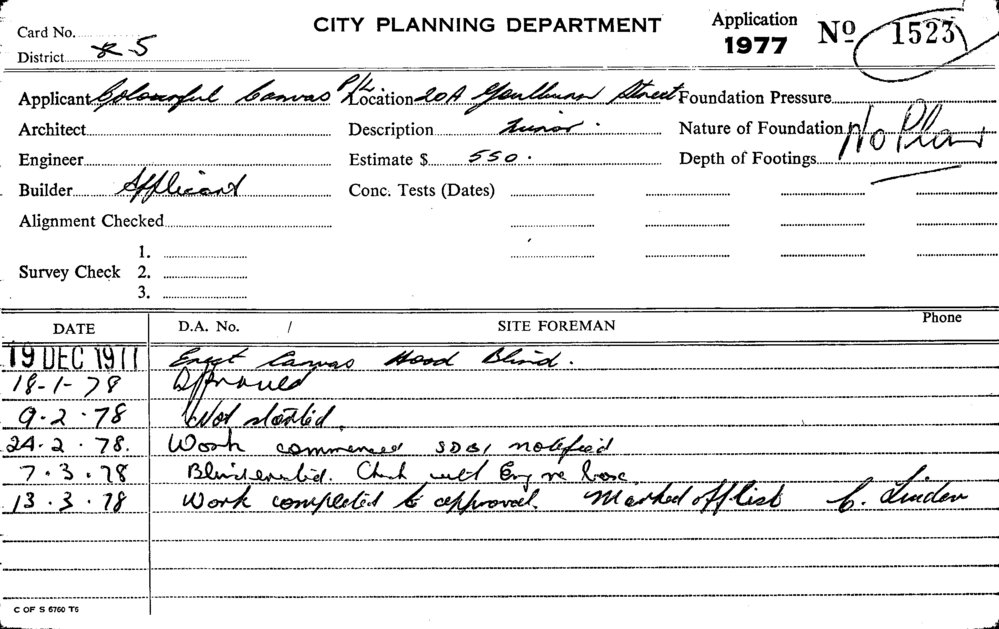 CITY PLANNING DEPARTMENT
Card No.
District R-5
Application 1977 No 1523
Applicant Colourful Canvas P/L Location 20A Goulburn Street Foundation Pressure
Architect Description Minor. Nature of Foundation No Plan
Engineer Estimate $ 550. Depth of Footings
Builder Applicant Conc. Tests (Dates)
Alignment Checked
Survey Check 1.
2.
3.
DATE D.A. No. / SITE FOREMAN Phone
19 DEC 1977 Erect Canvas Hood Blind.
18-1-78 Approved
9.2.78 Not started.
24.2.78. Work commenced notefied
7.3.78 Check with Eng re
13.3.78 Work completed to approval. Marked off list C. Linden
C OF S 6760 T6